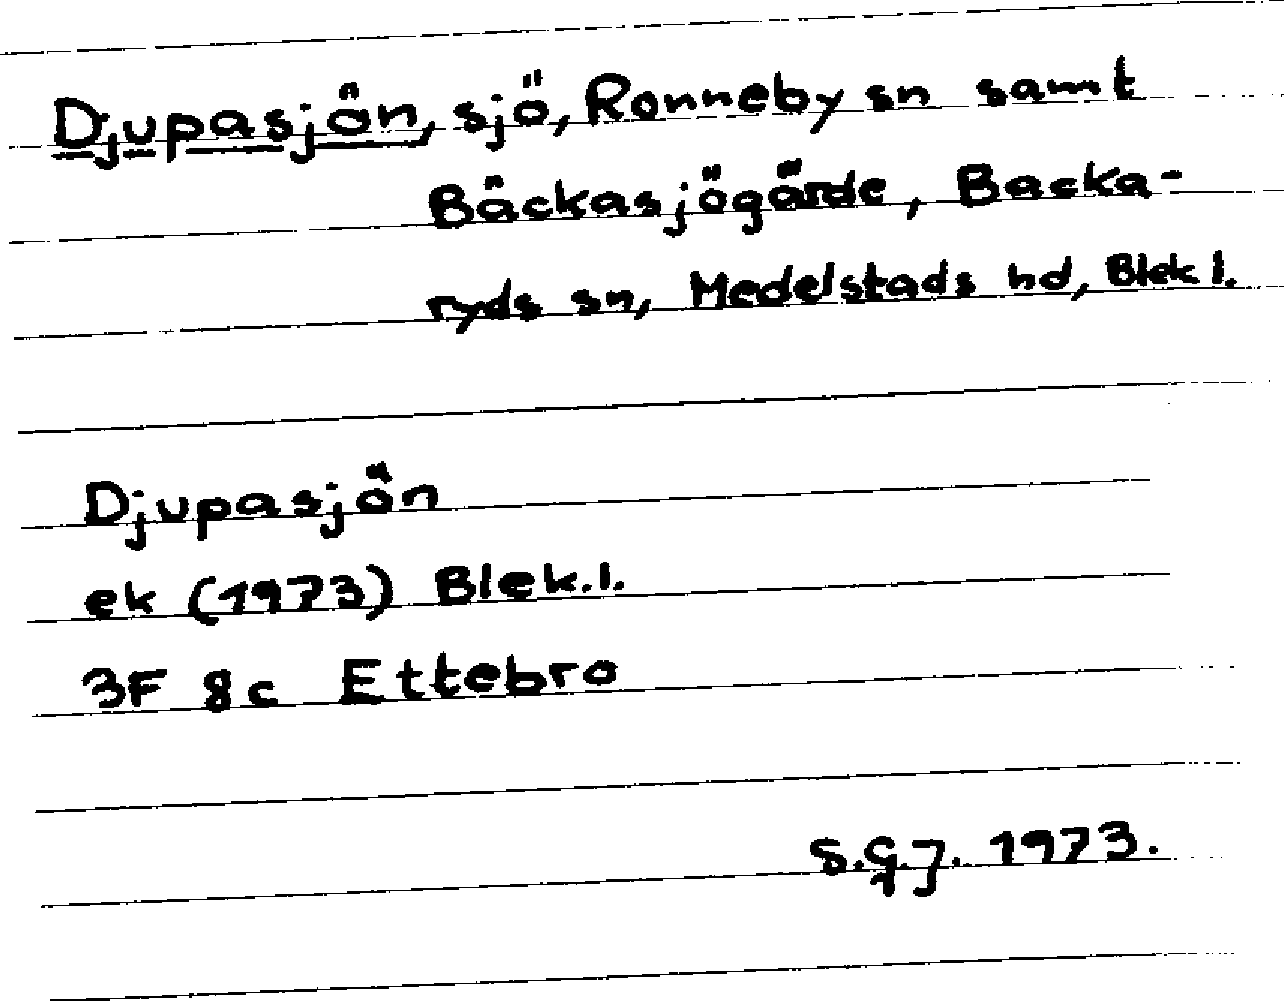 Djupasjön, sjö, Ronneby sn samt
Bäckasjögärde, Backa-
ryds sn, Medelstads hd, Blek l.
Djupasjön
ek (1973) Blek.l.
3F 8c Ettebro
S.G.J. 1973.